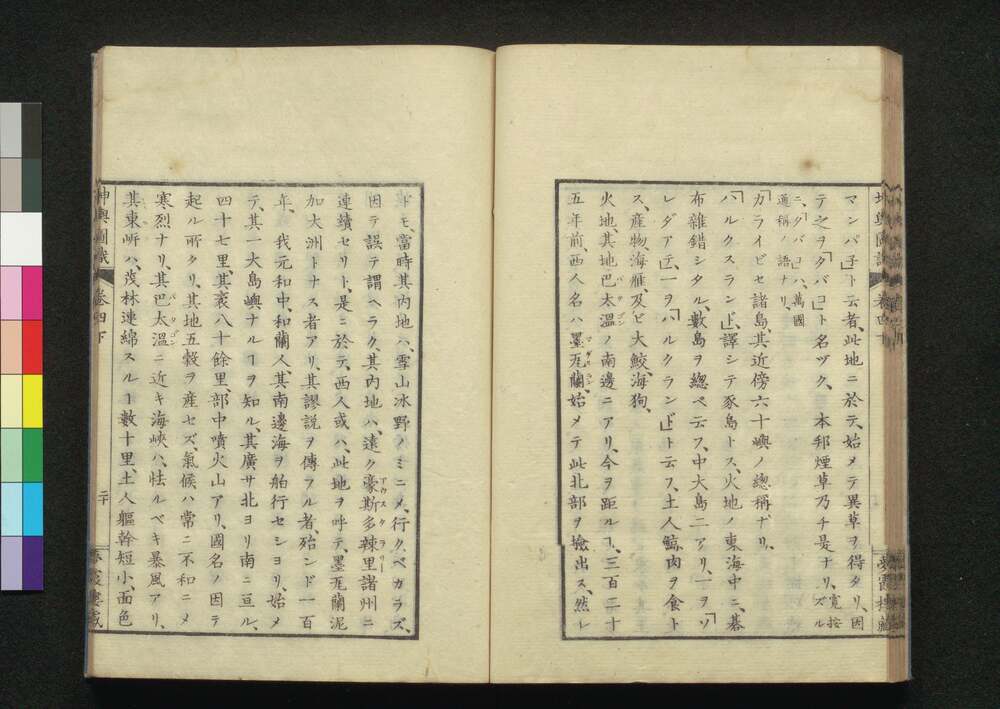 マンバ子」ト云者、此地ニ於テ、始メテ異草ヲ得タリ、因
テ之ヲ「タバコ」ト名ヅク、本邦煙草乃チ是ナリ、寛按ズル
ニ、タバコハ、萬國
通稱ノ語ナリ、
カライビセ諸島、其近傍六十嶼ノ總稱ナリ、
「ハルクスランド」譯シテ豕島トス、火地ノ東海中ニ、碁
布雜錯シタル、數島ヲ總ベ云フ、中大島二アリ、一ヲ「ソ
レダアド」一ヲ「ハルクランド」ト云フ、土人鯨肉ヲ食ト
ス、産物、海雁、及ビ大鮫、海狗、
火地、其地巴太溫ノ南邊ニアリ、今ヲ距ルヿ、三百二十
五年前、西人名ハ墨瓦蘭、始メテ此北部ヲ撿出ス、然レ
ドモ、當時其内地ハ、雪山冰野ノミニメ、行クベカラズ、
因テ誤テ謂ヘラク、其内地ハ、遠ク豪斯多辣里諸州ニ
連續セリト、是ニ於テ、西人或ハ、此地ヲ呼テ、墨瓦蘭泥
加大洲トナス者アリ、其謬説ヲ傳フル者殆ンド一百
年、我元和中、和蘭人其南邊海ヲ舶行セシヨリ、始メ
テ、其一大島嶼ナルヿヲ知ル、其廣サ北ヨリ南ニ亘ル、
四十七里、其袤八十餘里、部中噴火山アリ、國名ノ因テ
起ル所タリ、其地五穀ヲ産セズ、氣候ハ常ニ不和ニメ
寒烈ナリ、其巴太溫ニ近キ海峽ハ、怯ルベキ暴風アリ、
其東所ハ、茂林連綿スルヿ數十里、土人軀幹短小、面色
坤輿圖識 卷四下 二十